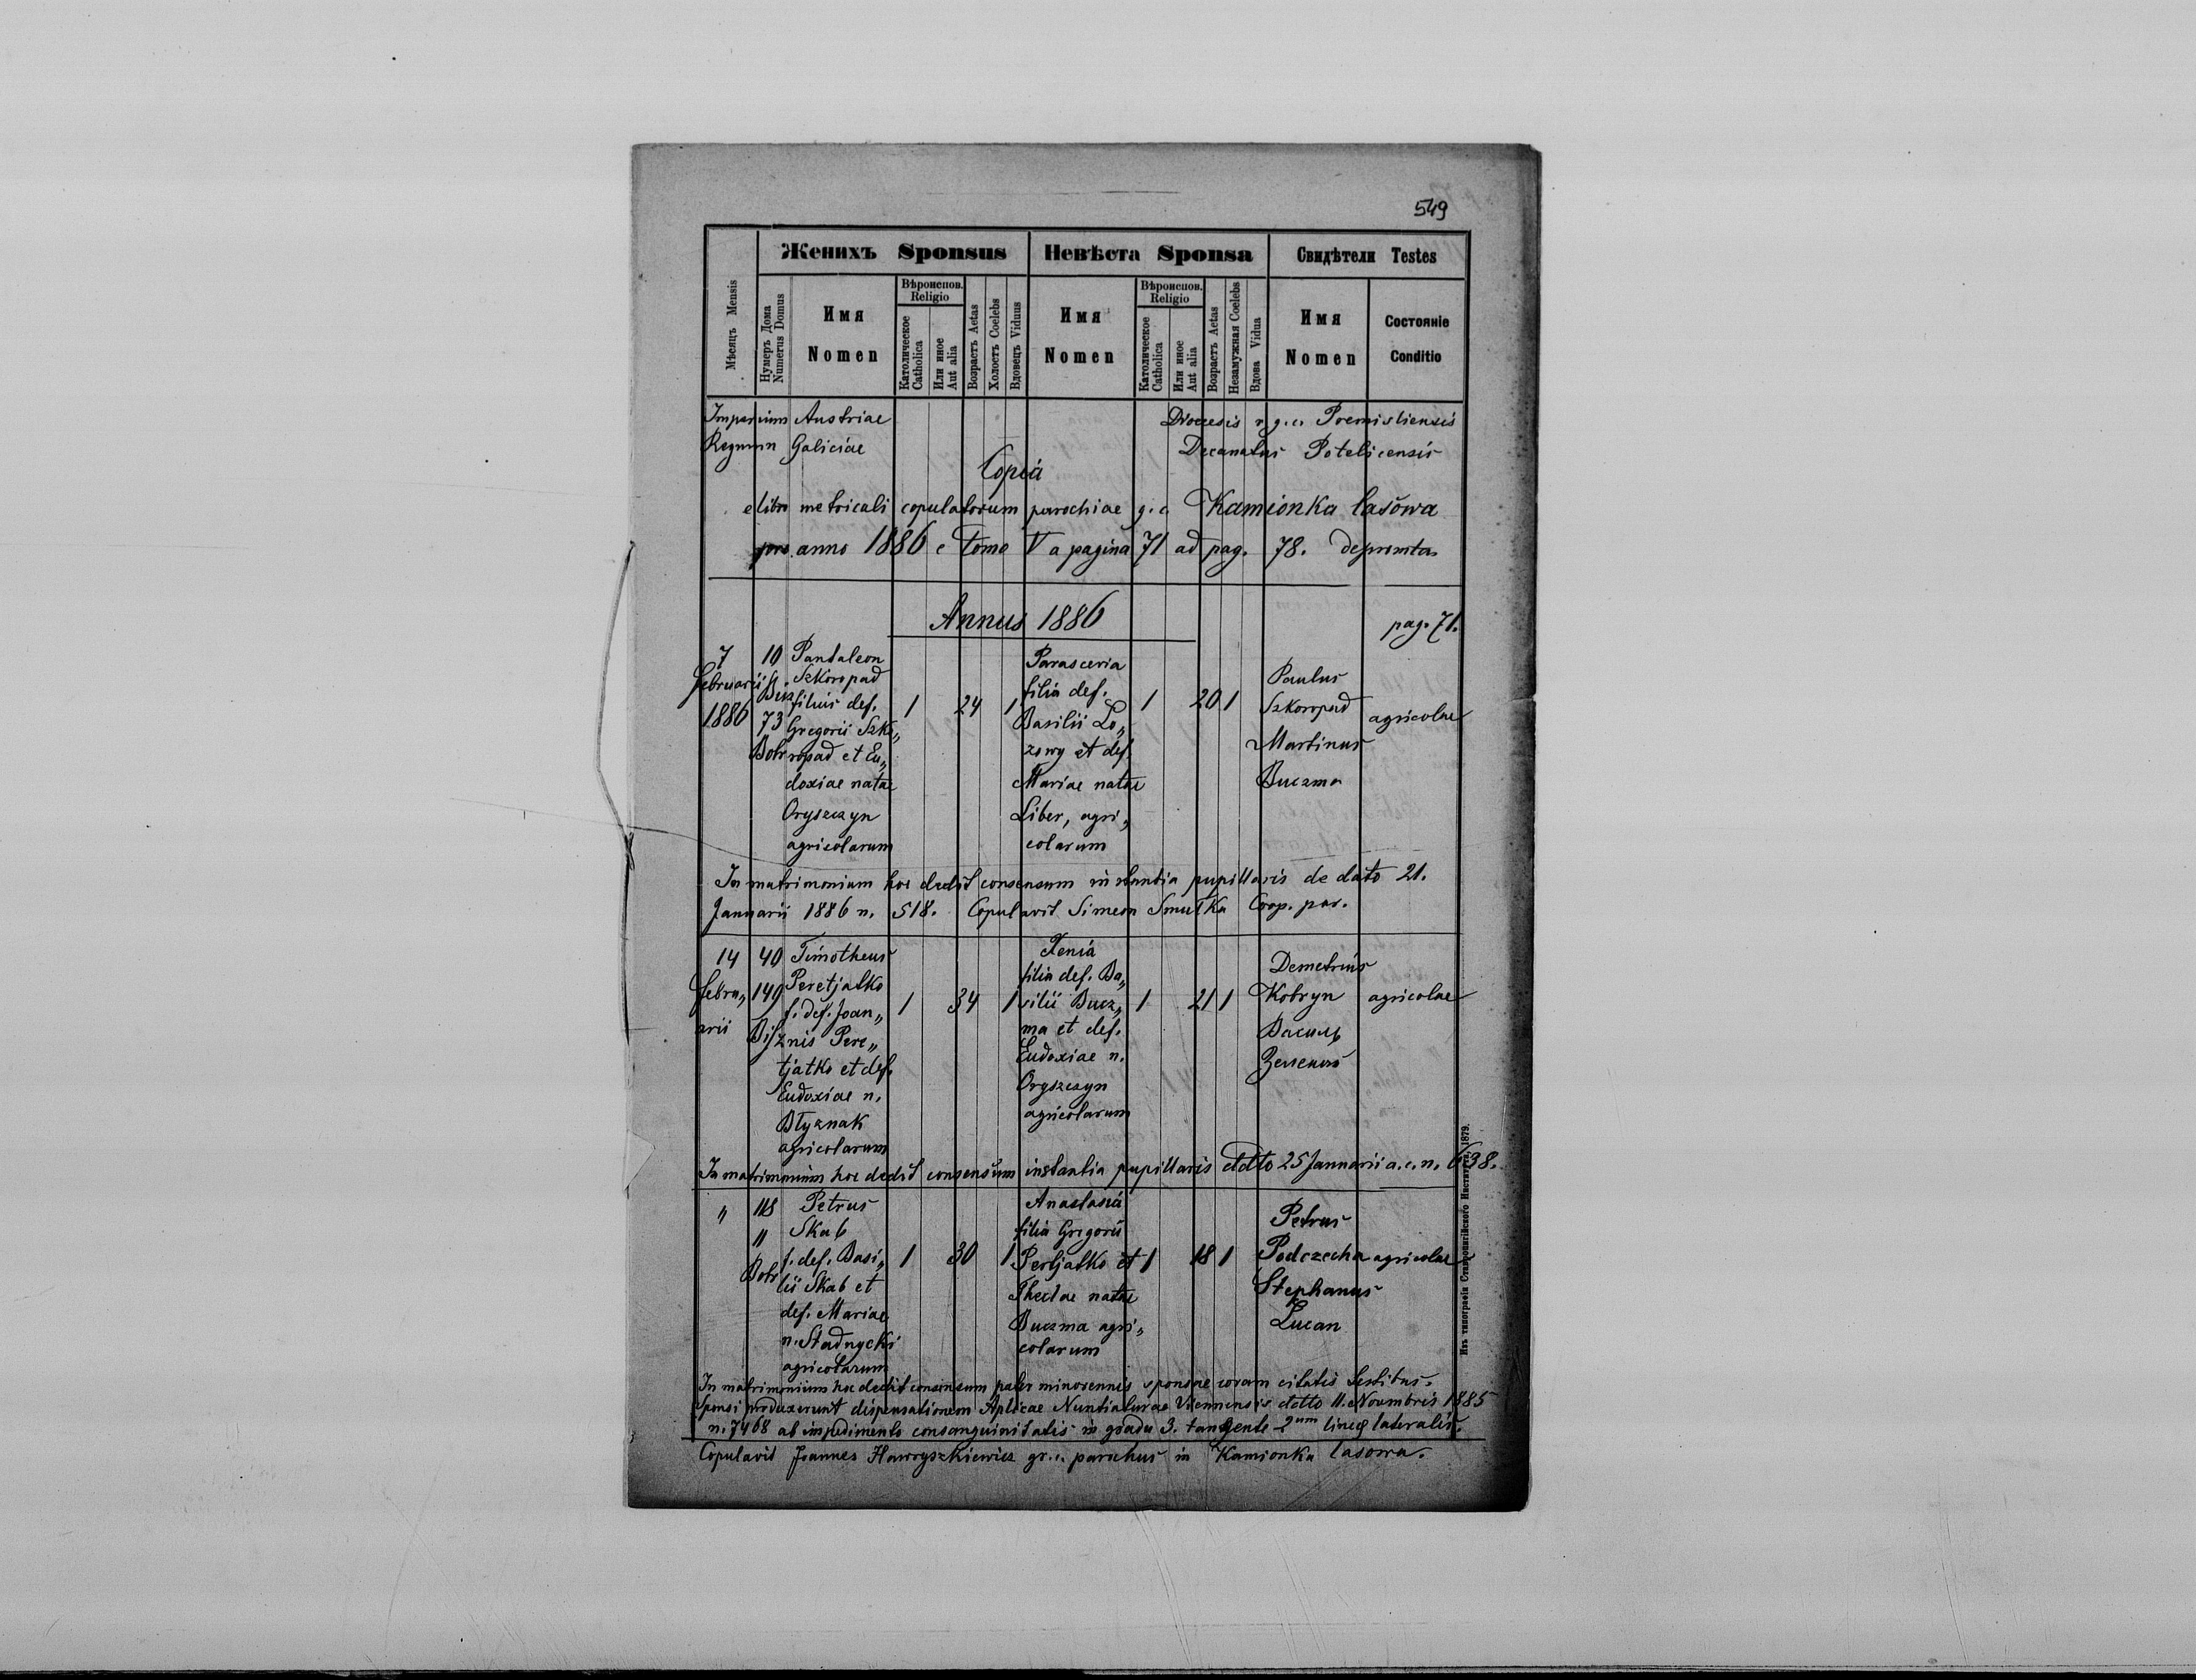 549
Женихъ Sponsus
Невѣста Sponsa
Свидѣтели Testes
Мѣсяцъ Mensis
Нумеръ Дома
Numerus Domus
Имя
Nomen
Вѣроиспов.
Religio
Католическое
Catholica
Или иное
Aut alia
Возрастъ Aetas
Холостъ Coelebs
Вдовецъ Viduus
Имя
Nomen
Вѣроиспов.
Religio
Католическое
Catholica
Или иное
Aut alia
Возрастъ Aetas
Незамужная Coelebs
Вдова Vidua
Имя
Nomen
Состояніе
Conditio
Imperium Austriae
Regnum Galiciae
Dioecesis r.g.c. Premisliensis
Decanatus Potelicensis
Copia
e libro metricali copulatorum parochiae g.c. Kamionka lasowa
pro anno 1886 e Tomo V a pagina 71 ad pag. 78. depromta
Annus 1886
pag. 71.
7
Februarii
1886
10
73
Botr
Pantaleon
Szkoropad
filius def.
Gregorii Szko„
ropad et Eu„
doxiae natae
Oryszczyn
agricolarum
1
24
1
Parascevia
filia def.
Basilii Lo„
zowy et def.
Mariae natae
Liber, agri„
colarum
1
20
1
Paulus
Szkoropad
Martinus
Buczma
agricolae
In matrimonium hoc dedit consensum instantia pupillaris de dato 21.
Januarii 1886 n. 518. Copulavit Simeon Smulka Coop. par.
14
febru„
arii
40
149
Timotheus
Peretjatko
f. def. Joan„
nis Pere„
tjatko et def.
Eudoxiae n.
Błyznak
agricolarum
1
34
1
Xenia
filia def. Ba„
silii Bucz„
ma et def.
Eudoxiae n.
Oryszczyn
agricolarum
1
21
1
Demetrius
Kobryn
Василь
agricolae
In matrimonium hoc dedit consensum instantia pupillaris ddto 25 Januarii a.c. n. 638.
„
118
„
Botr
Petrus
Skab
f. def. Basi„
lii Skab et
def. Mariae
n. Stadnycki
agricolarum
1
30
1
Anastasia
filia Gregorii
Pertjatko et
Theclae natae
Buczma agri„
colarum
1
18
1
Petrus
Podczecha
Stephanus
Lucan
agricolae
In matrimonium hoc dedit consensum pater minorennis sponsae coram citatis testibus.
Sponsi produxerunt dispensationem Aplicae Nuntiaturae Viennensis ddto 11. Novembris 1885
n. 7468 ab impedimento consanguinitatis in gradu 3. tangente 2um lineae lateralis.
Copulavit Joannes Hawryszkiewicz gr.c. parochus in Kamionka lasowa.
Изъ типографіи Ставропигійского Института 1879.